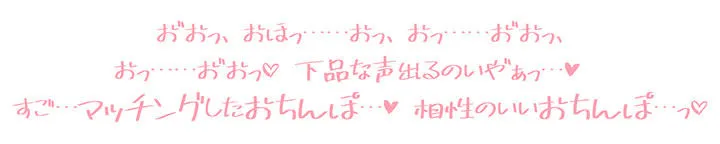 お゛おっ、おほっ……おっ、おっ……お゛おっ、
おっ……お゛おっ♡ 下品な声出るのいやぁっ…♥
すご…マッチングしたおちんぽ…♥ 相性のいいおちんぽ…っ♡